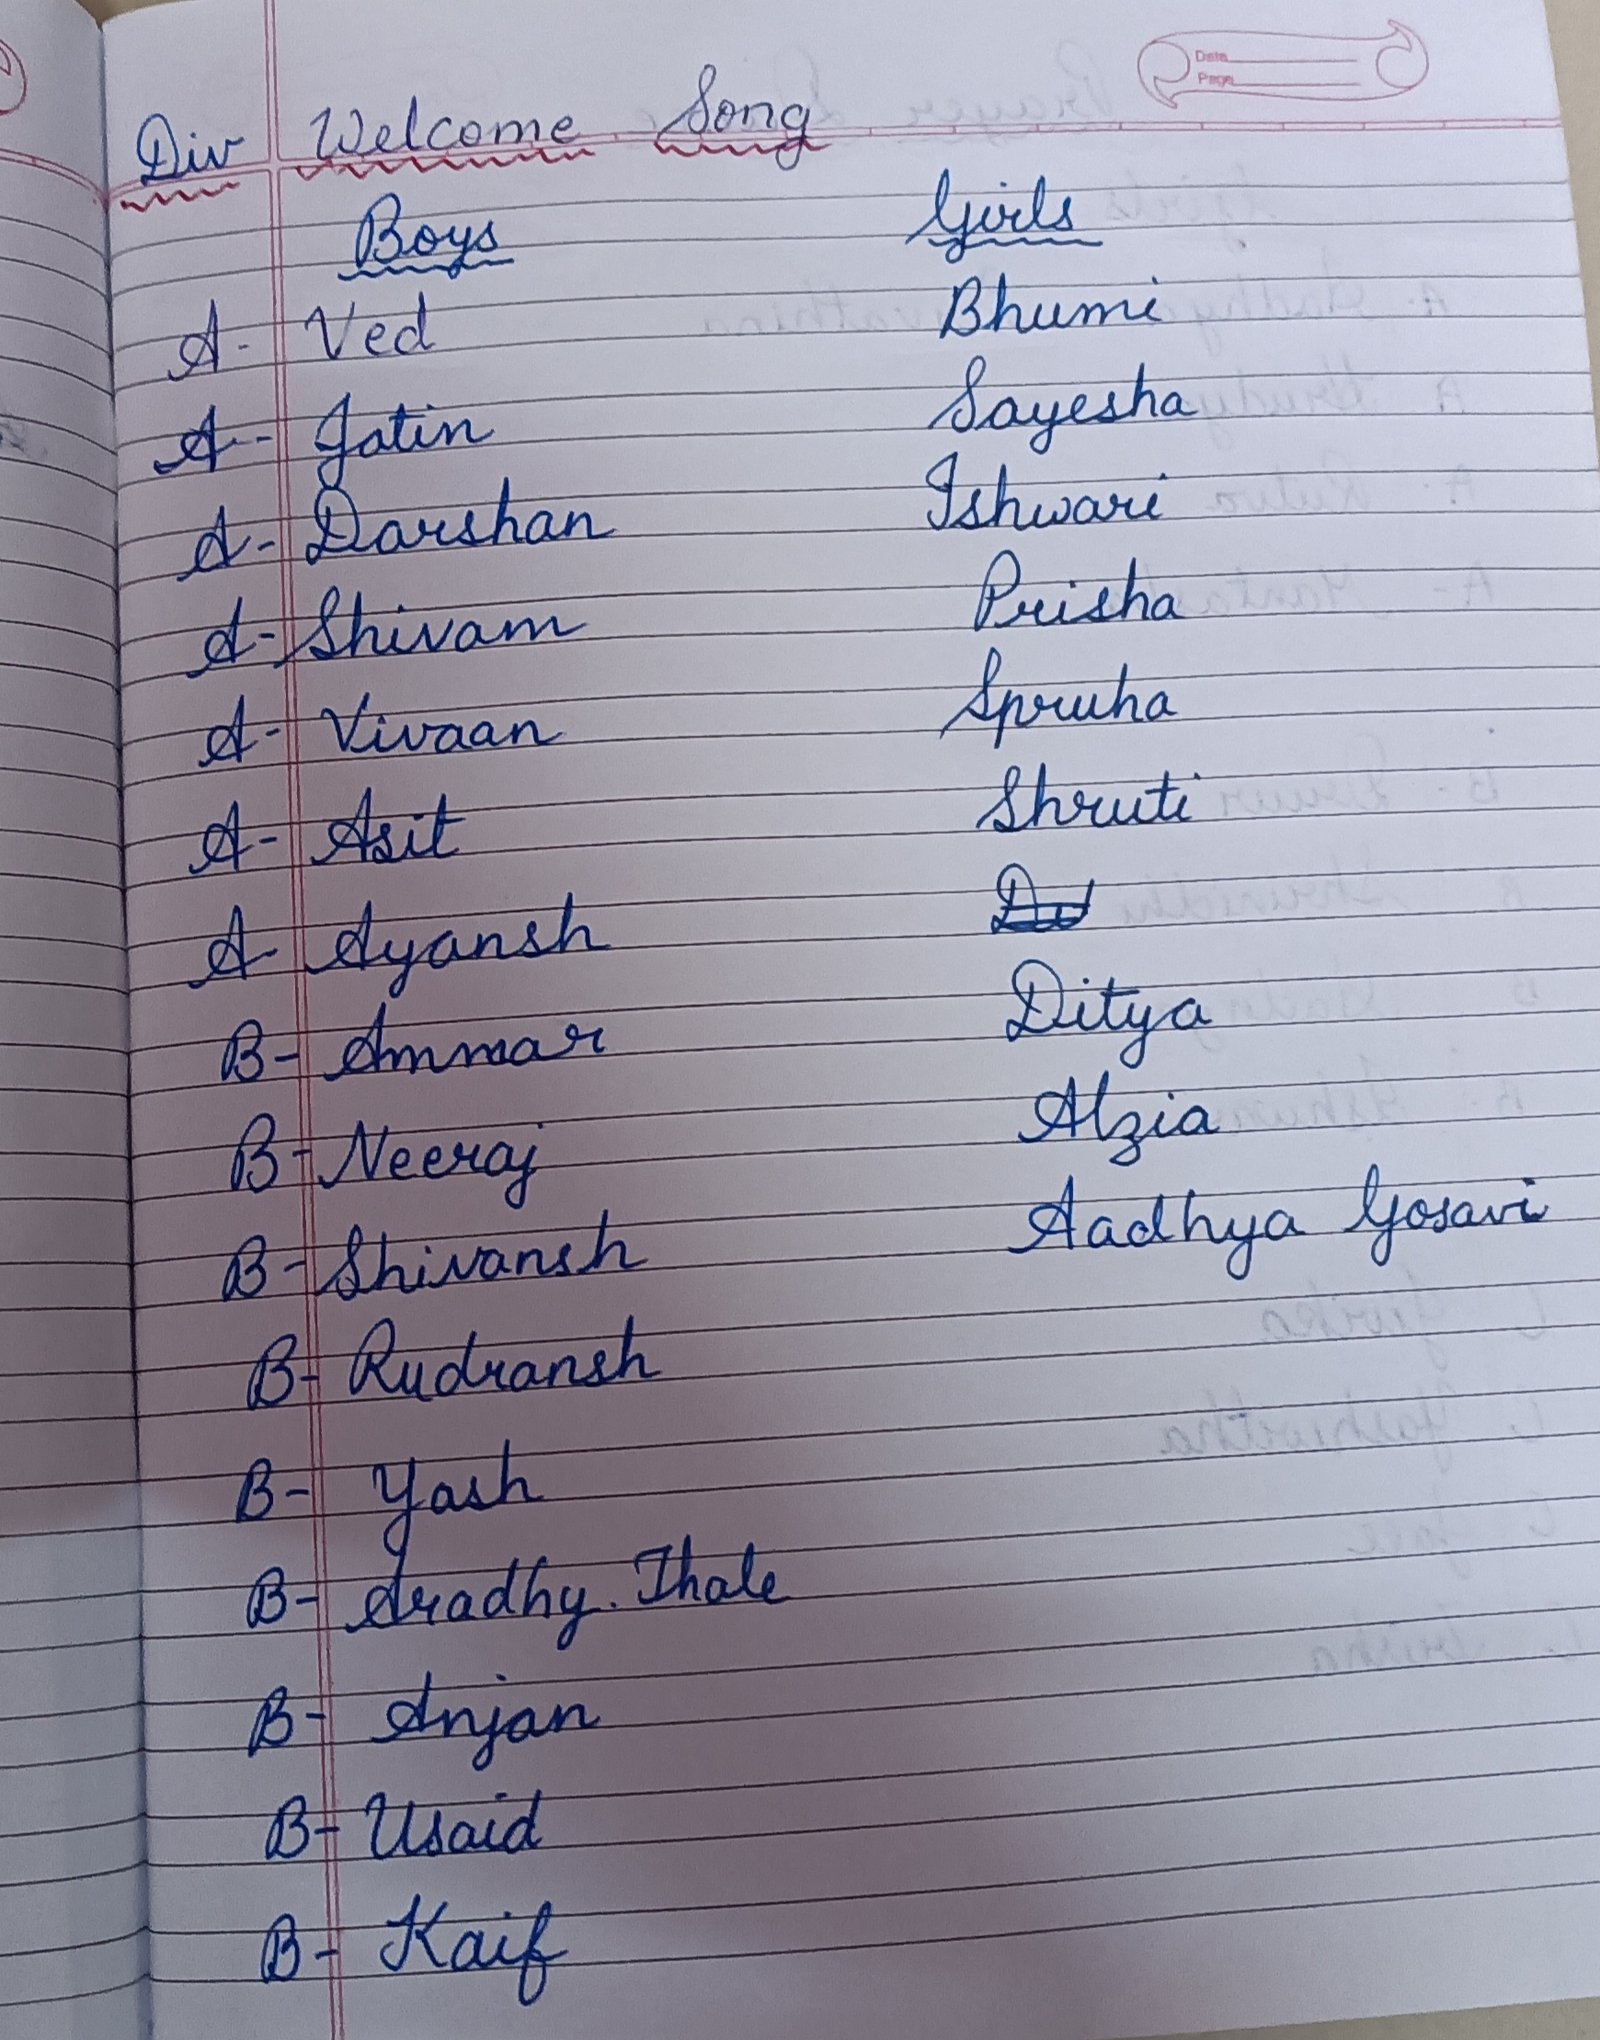 Date
Page
Div Welcome Song
Boys Girls
A- Ved Bhumi
A- Jatin Sayesha
A- Darshan Ishwari
A- Shivam Prisha
A- Vivaan Spruha
A- Asit Shruti
A- Ayansh
B- Ammar Ditya
B- Neeraj Alzia
B- Shivansh Aadhya Gosavi
B- Rudransh
B- Yash
B- Aradhy. Thale
B- Anjan
B- Usaid
B- Kaif